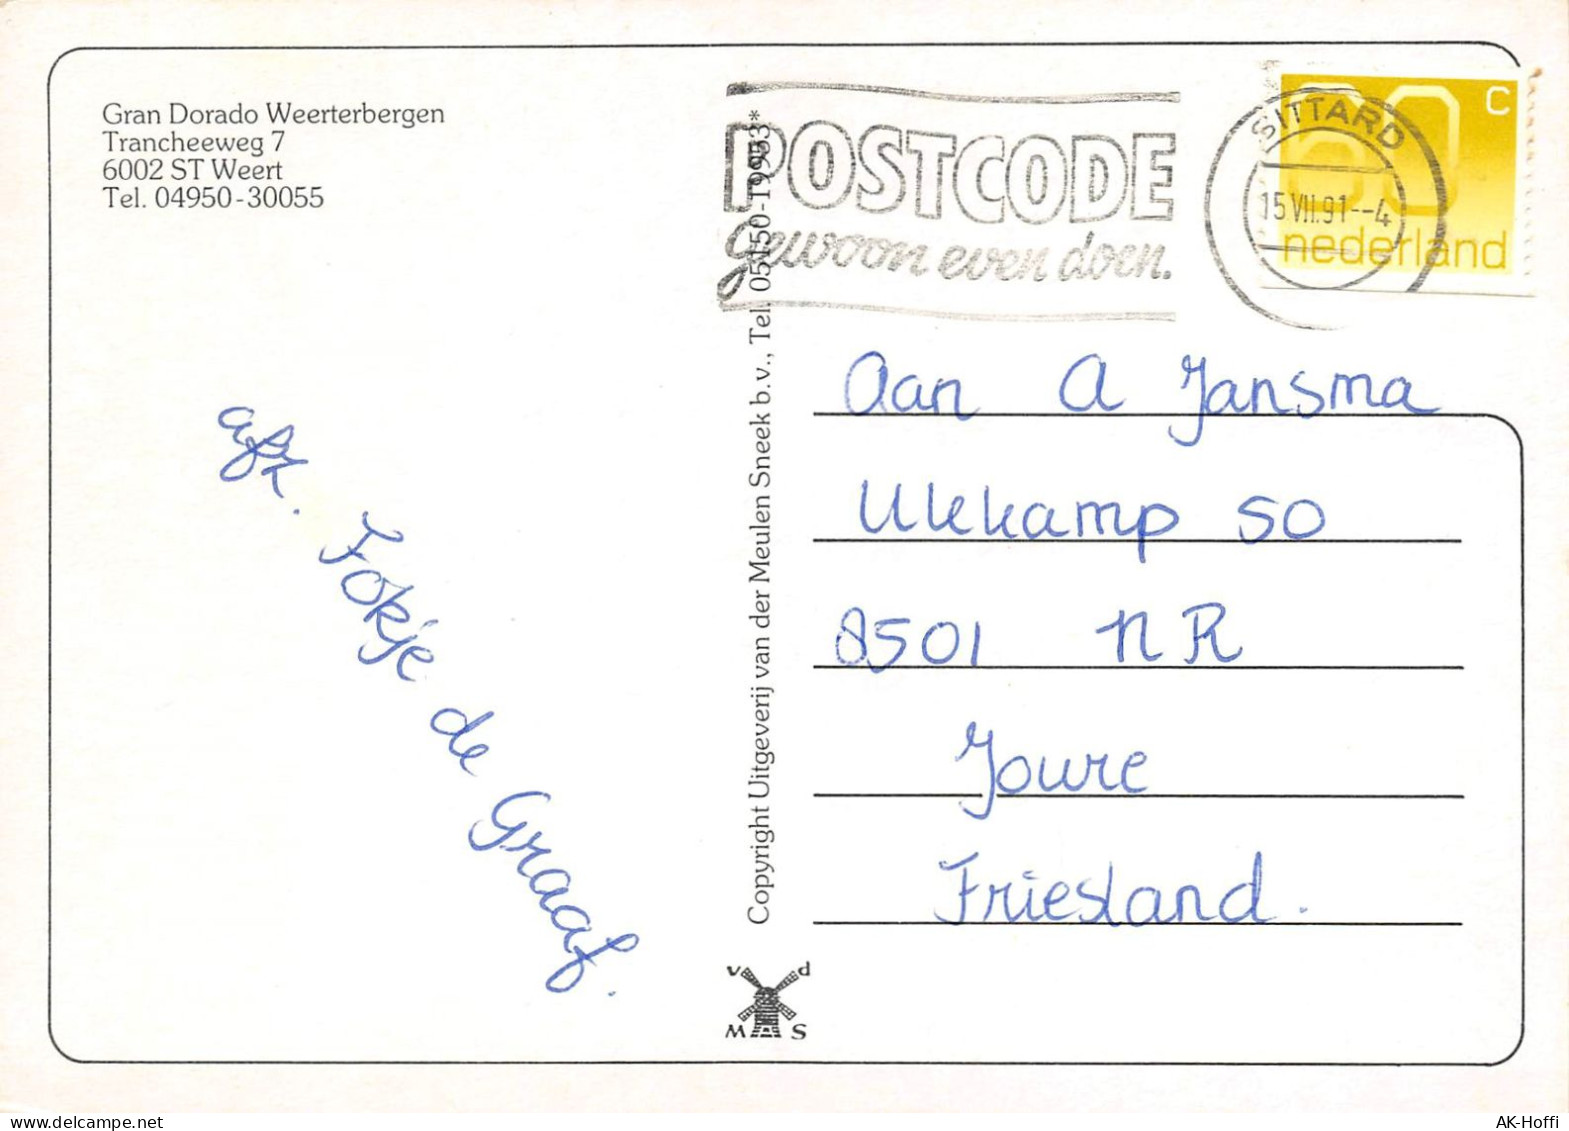 Gran Dorado Weerterbergen
Trancheeweg 7
6002 ST Weert
Tel. 04950-30055
POSTCODE
gewoon even doen.
SITTARD
15.VII.91--4
60 C
nederland
afz. Fokje de Graaf.
Copyright Uitgeverij van der Meulen Sneek b.v., Tel. 05150-19953*
Aan A Jansma
Ulekamp 50
8501 NR
Joure
Friesland.
v d
M S
delcampe.net
AK-Hoffi